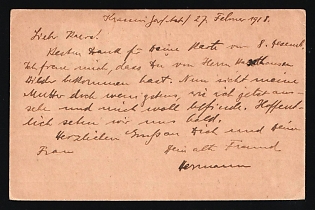 27. Febr. 1918.
Lieb
Besten Dank für Deine Karte vom 8. 
Ich freue mich, dass Du von Herrn
Bilder bekommen hast. Nun sieht meine
Mutter doch wenigstens, wie ich jetzt aus-
sehe und mich wohl befinde. Hoffent-
lich sehen wir uns bald.
Herzlichen Gruss an Dich und Deine
Frau Dein alter Freund
Hermann